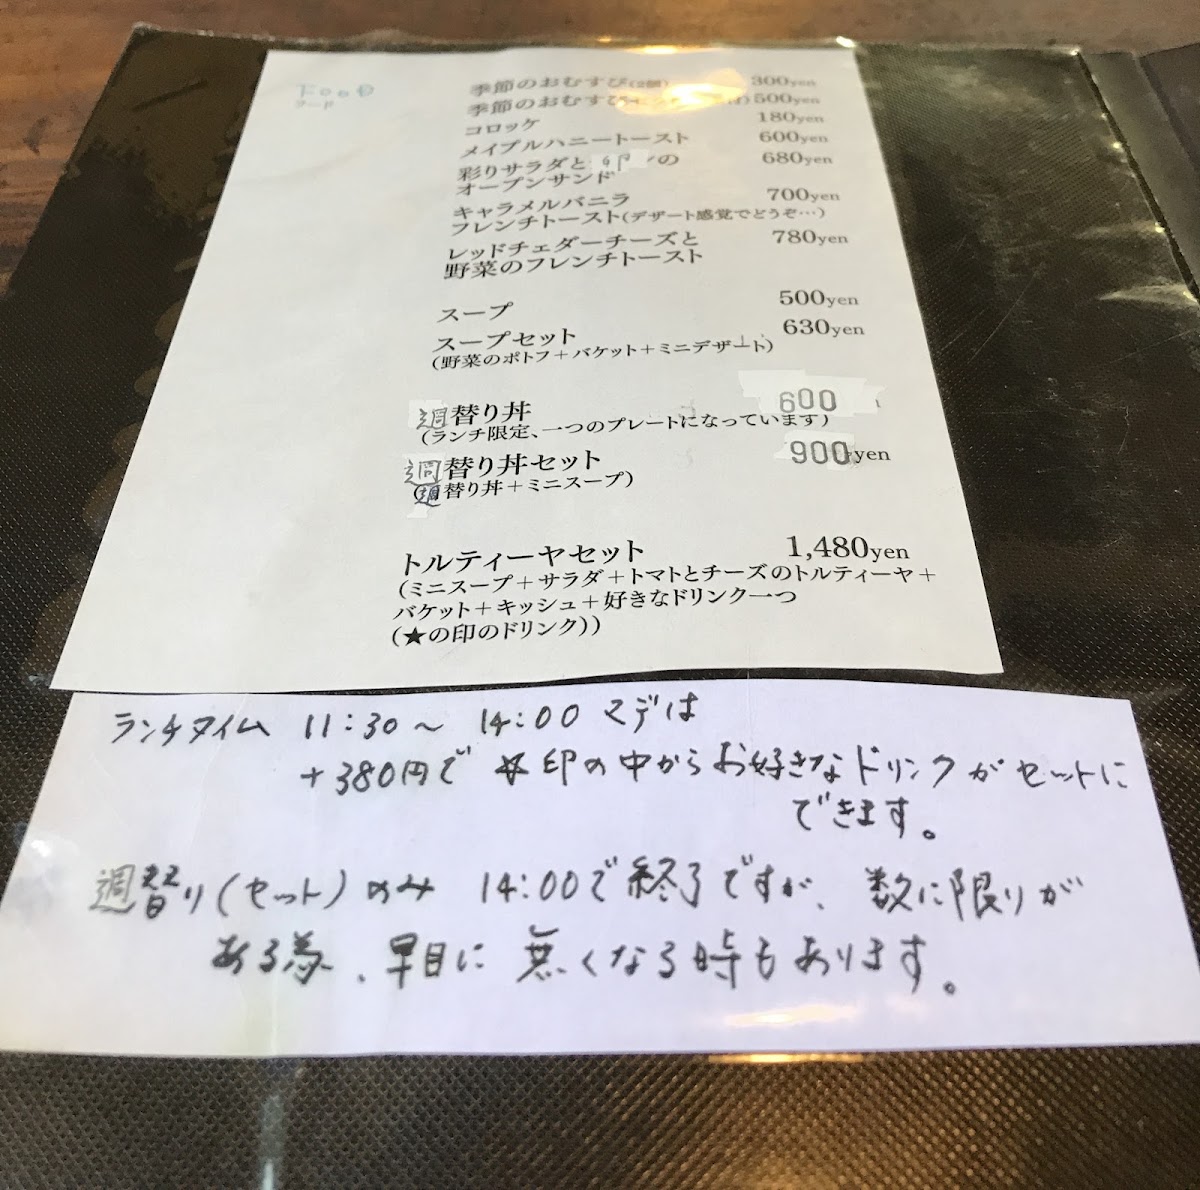 FOOD
フード
季節のおむすび(2個) 300yen
季節のおむすび 500yen
コロッケ 180yen
メイプルハニートースト 600yen
彩りサラダと卵の 680yen
オープンサンド
キャラメルバニラ 700yen
フレンチトースト(デザート感覚でどうぞ…)
レッドチェダーチーズと 780yen
野菜のフレンチトースト
スープ 500yen
スープセット 630yen
(野菜のポトフ+バケット+ミニデザート)
週替り丼 600
(ランチ限定、一つのプレートになっています)
週替り丼セット 900yen
(週替り丼+ミニスープ)
トルティーヤセット 1,480yen
(ミニスープ+サラダ+トマトとチーズのトルティーヤ+
バケット+キッシュ+好きなドリンク一つ
(★の印のドリンク))
ランチタイム 11:30〜 14:00 マデは
+380円で ☆印の中からお好きなドリンクがセットに
できます。
週替り(セット)のみ 14:00で終了ですが、数に限りが
ある為、早目に無くなる時もあります。